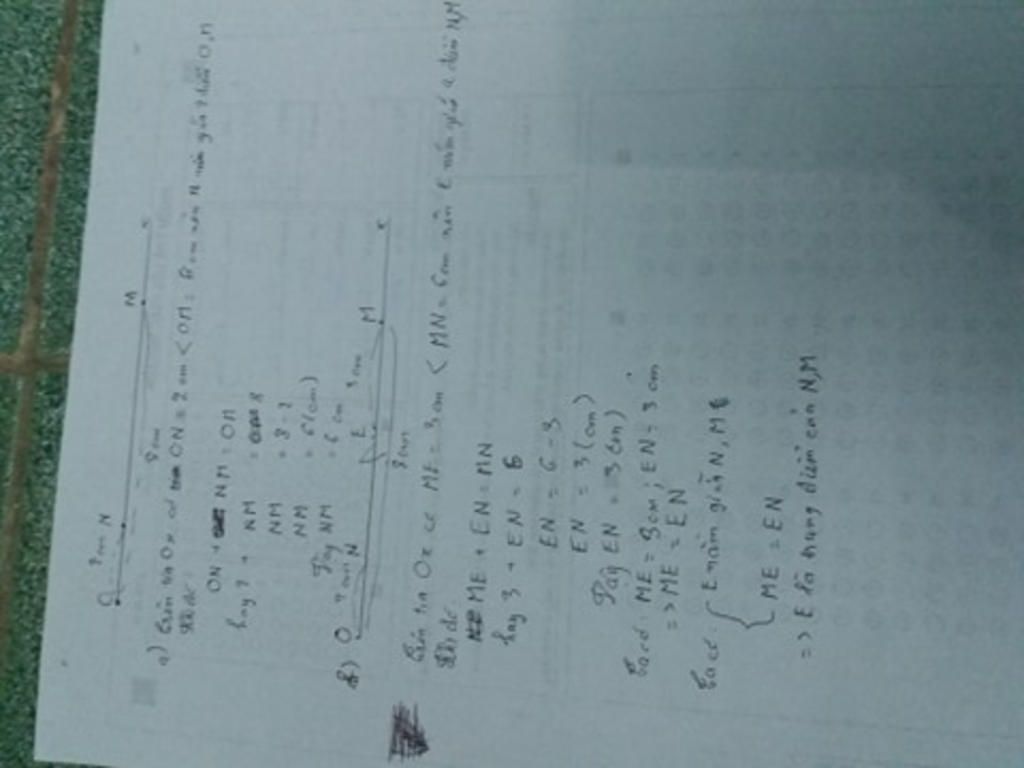 O 2cm N M x
8cm
a) Trên tia Ox có ON = 2 cm < OM = 8 cm nên N nằm giữa 2 điểm O, M
ON + NM = OM
hay 2 + NM = 8
NM = 8 - 2
NM = 6 (cm)
Vậy NM = 6 cm
b) O 2cm N E 3cm M x
8cm
Trên tia Ox có ME = 3 cm < MN = 6 cm nên E nằm giữa 2 điểm N, M
ME + EN = MN
hay 3 + EN = 6
EN = 6 - 3
EN = 3 (cm)
Vậy EN = 3 (cm)
Ta có: ME = 3 cm; EN = 3 cm
=> ME = EN
Ta có: { E nằm giữa N, M
ME = EN
=> E là trung điểm của N, M